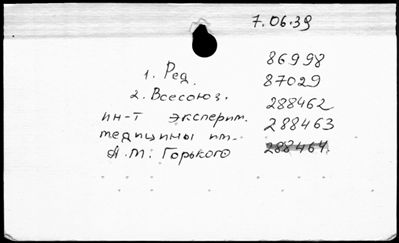 7.06.39
86998
1. Ред. 87029
2. Всесоюз. 288462
ин-т эксперим. 288463
медицины им. 288464
А.М. Горького